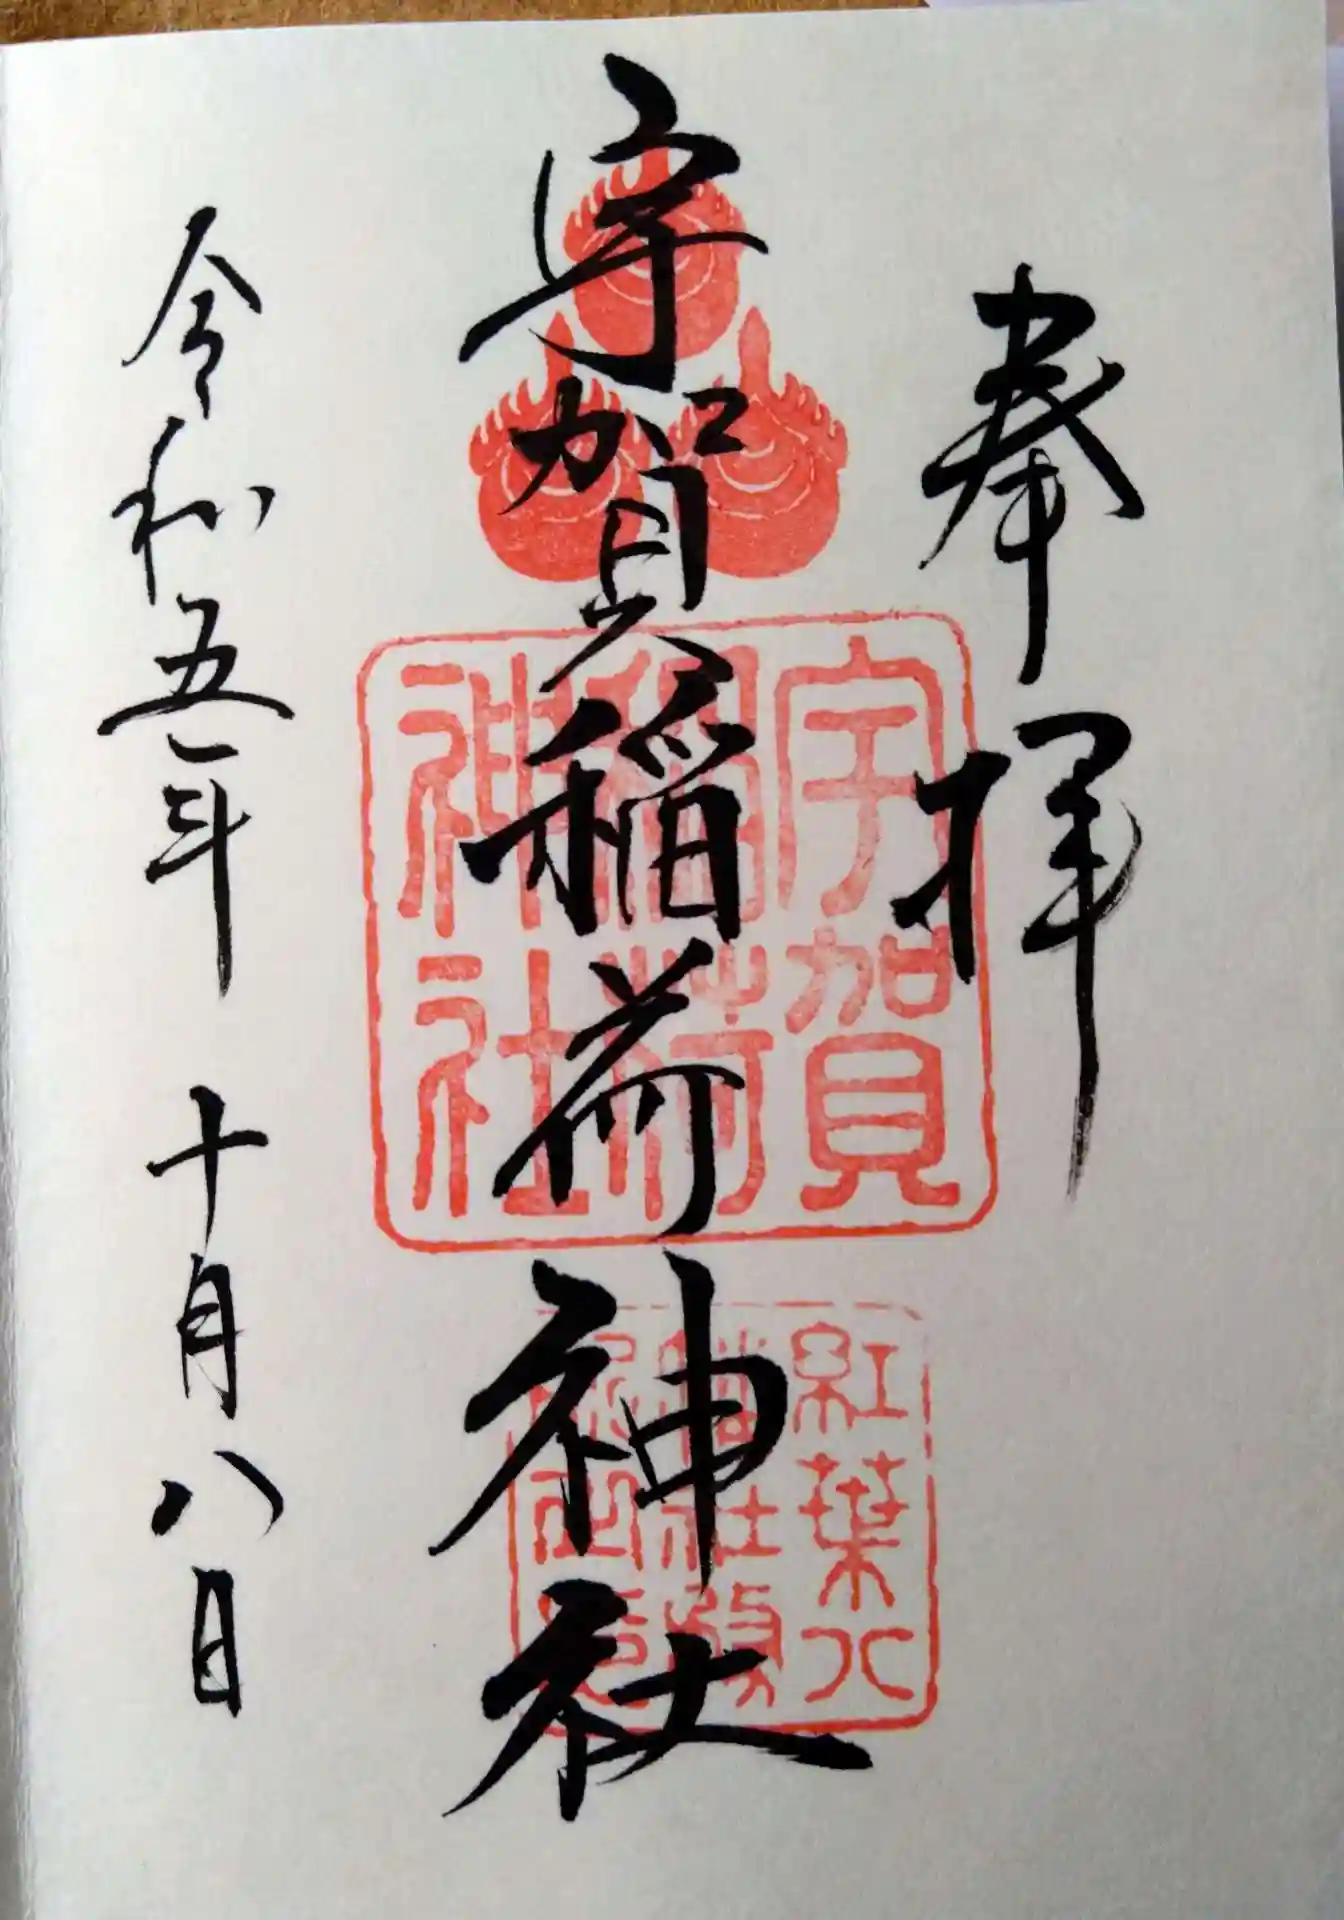 奉拝
宇賀稲荷神社
令和五年 十月八日
宇賀
稲荷
神社
紅葉八
社務